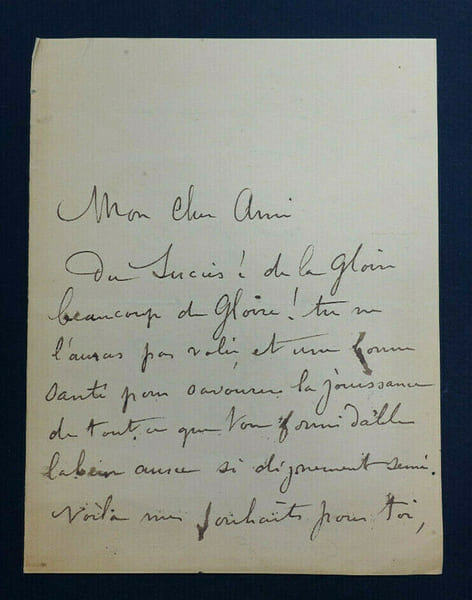 Mon cher Ami
Du Succès! de la Gloire
beaucoup de Gloire! tu ne
l'auras pas volée et une bonne
santé pour savourer la jouissance
de tout ce que ton formidable
labeur aura si dignement semé.
Voilà mes souhaits pour toi,